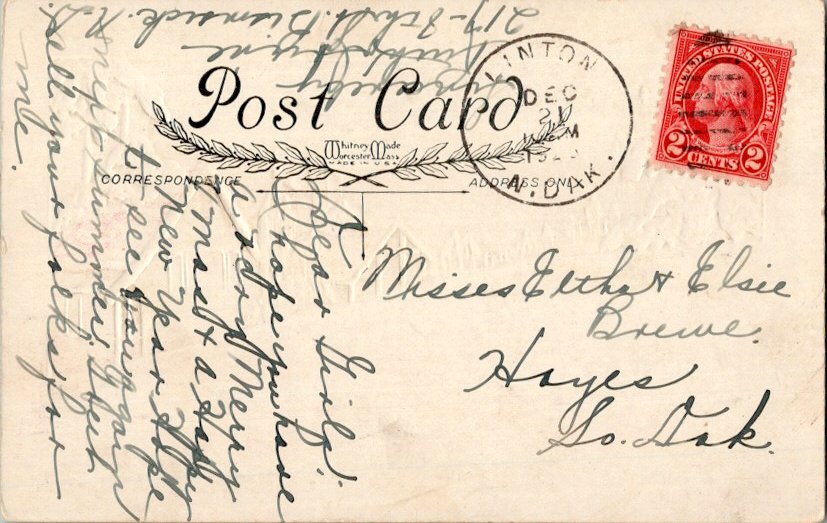 Post Card
Whitney Made
Worcester, Mass
MADE IN U.S.A.
CORRESPONDENCE
ADDRESS ONLY
LINTON
DEC
21
N. DAK.
UNITED STATES POSTAGE
2 CENTS 2
Misses Eltha & Elsie
Brewe.
Hayes
So. Dak.
Dear Girls:
I hope you have
a very Merry
Xmas & a Happy
New Year. Hope
to see you again
next summer. Don't
sell your folks for
me.
217-8th St. Bismarck. N.D.